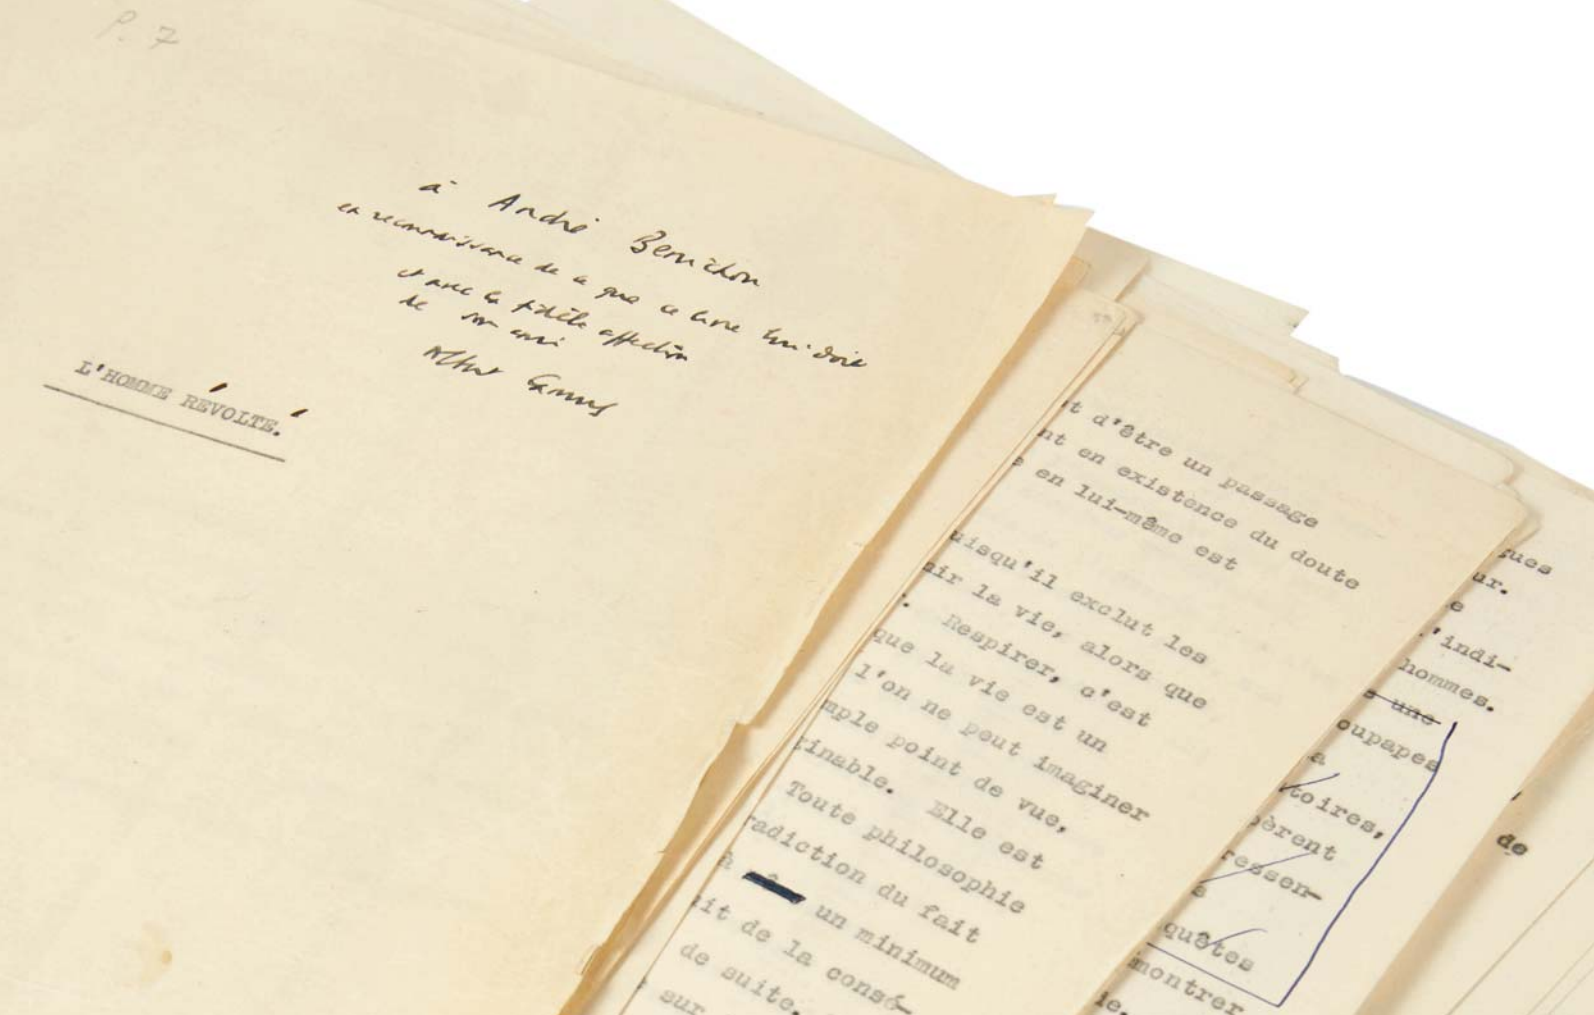 P. 7
à André Benichou
en reconnaissance de ce que ce livre lui doit
et avec la fidèle affection
de son ami
Albert Camus
L'HOMME RÉVOLTÉ.
t d'être un passage
nt en existence du doute
e en lui-même est
uisqu'il exclut les
air la vie, alors que
. Respirer, c'est
que la vie est un
l'on ne peut imaginer
mple point de vue,
ginable. Elle est
Toute philosophie
radiction du fait
un minimum
ait de la consé-
de suite.
sur
gues
ur.
e
l'indi-
hommes.
s une
oupapes
a
toires,
pèrent
ressen-
s
quêtes
montrer
ie.
de